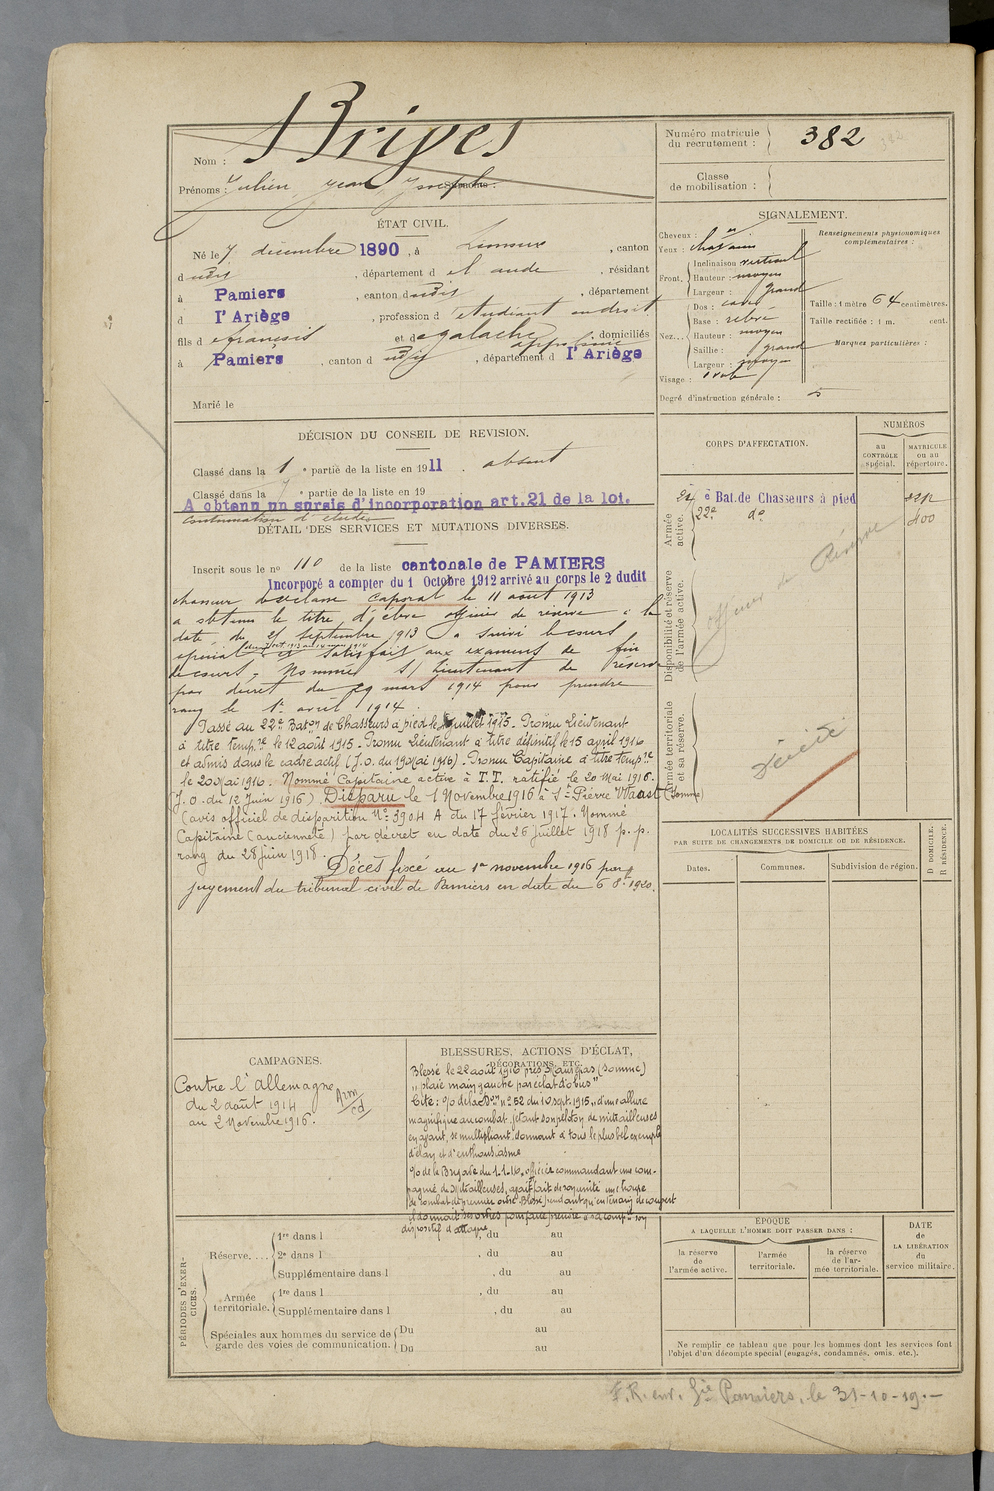 Nom : Bripes
Prénoms : Julien Jean Joseph Surnoms :
Numéro matricule du recrutement : 382
Classe de mobilisation :
ÉTAT CIVIL.
Né le 7 décembre 1890, à Limoux, canton
d udis, département d el aude, résidant
à Pamiers, canton d udis, département
d l'Ariège, profession d etudiant en droit
fils d e françois et d e galache, domiciliés
à Pamiers, canton d udis, département d l'Ariège
Marié le
SIGNALEMENT.
Cheveux : 
Yeux : chatains
Front. Inclinaison vertical
Hauteur : moyen
Largeur : grand
Nez... Dos : cave
Base :
Hauteur : moyen
Saillie : grand
Largeur : moyen
Visage : ovale
Renseignements physionomiques complémentaires :
Taille : 1 mètre 64 centimètres.
Taille rectifiée : 1 m. cent.
Marques particulières :
Degré d'instruction générale : 5
DÉCISION DU CONSEIL DE REVISION.
Classé dans la 1e partie de la liste en 1911. absent
Classé dans la e partie de la liste en 19
A obtenu un sursis d'incorporation art. 21 de la loi.
continuation d'études
DÉTAIL DES SERVICES ET MUTATIONS DIVERSES.
Inscrit sous le no 110 de la liste cantonale de PAMIERS
Incorporé a compter du 1 Octobre 1912 arrivé au corps le 2 dudit
chasseur de 2e classe Caporal le 11 août 1913
a obtenu le titre d'élève officier de réserve à la
date du 25 septembre 1913 a suivi le cours
spécial et satisfait aux examens de fin
de cours. Nommé s/ Lieutenant de réserve
par décret du 29 mars 1914 pour prendre
rang le 1er avril 1914.
Passé au 22e Baton de Chasseurs à pied le juillet 1915. Promu Lieutenant
à titre temp.re le 12 août 1915. Promu Lieutenant à titre définitif le 15 avril 1916
et admis dans le cadre actif (J.O. du 19 Mai 1916). Promu Capitaine à titre temp.re
le 20 Mai 1916. Nommé Capitaine active à T.T. ratifié le 20 Mai 1916.
(J.O. du 12 Juin 1916). Disparu le 1 Novembre 1916 à St Pierre Waast (Somme)
(avis officiel de disparition No 3904 A du 17 février 1917. Nommé
Capitaine (ancienneté) par décret en date du 26 Juillet 1918 p. p.
rang du 28 juin 1918.
Décès fixé au 1er novembre 1916 par
jugement du tribunal civil de Pamiers en date du 6 8e 1920.
CORPS D'AFFECTATION.
NUMÉROS
au CONTRÔLE spécial.
MATRICULE ou au répertoire.
Armée active.
24e Bat. de Chasseurs à pied
22e do 400
Disponibilité et réserve de l'armée active.
Officier de Réserve
Armée territoriale et sa réserve.
Décédé
LOCALITÉS SUCCESSIVES HABITÉES
PAR SUITE DE CHANGEMENTS DE DOMICILE OU DE RÉSIDENCE.
Dates.
Communes.
Subdivision de région.
D DOMICILE.
R RÉSIDENCE.
CAMPAGNES.
Contre l'Allemagne
du 2 août 1914
au 2 Novembre 1916.
BLESSURES, ACTIONS D'ÉCLAT,
DÉCORATIONS, ETC.
Blessé le 22 août 1916 près Maurepas (Somme)
"plaie main gauche par éclat d'obus"
Cité : % de la Bon no 52 du 10 sept. 1915 "d'une allure
magnifique au combat jetant son peloton de mitrailleuses
en avant, se multipliant, donnant à tous le plus bel exemple
d'élan et d'enthousiasme
% de la Brigade du 1-1-16, officier commandant une com-
pagnie de Mitrailleuses, ayant fait de son unité une troupe
de combat de premier ordre. Blessé pendant qu'en terrain découvert
il donnait des ordres pour faire prendre à sa comp. son
dispositif d'attaque
PÉRIODES D'EXERCICES.
Réserve.... 1re dans l , du au
2e dans l , du au
Supplémentaire dans l , du au
Armée territoriale. 1re dans l , du au
Supplémentaire dans l , du au
Spéciales aux hommes du service de garde des voies de communication. Du au
Du au
ÉPOQUE
A LAQUELLE L'HOMME DOIT PASSER DANS :
la réserve de l'armée active.
l'armée territoriale.
la réserve de l'armée territoriale.
DATE
de
LA LIBÉRATION
du
service militaire.
Ne remplir ce tableau que pour les hommes dont les services font
l'objet d'un décompte spécial (engagés, condamnés, omis, etc.).
F.R. env. Gie Pamiers, le 31-10-19.